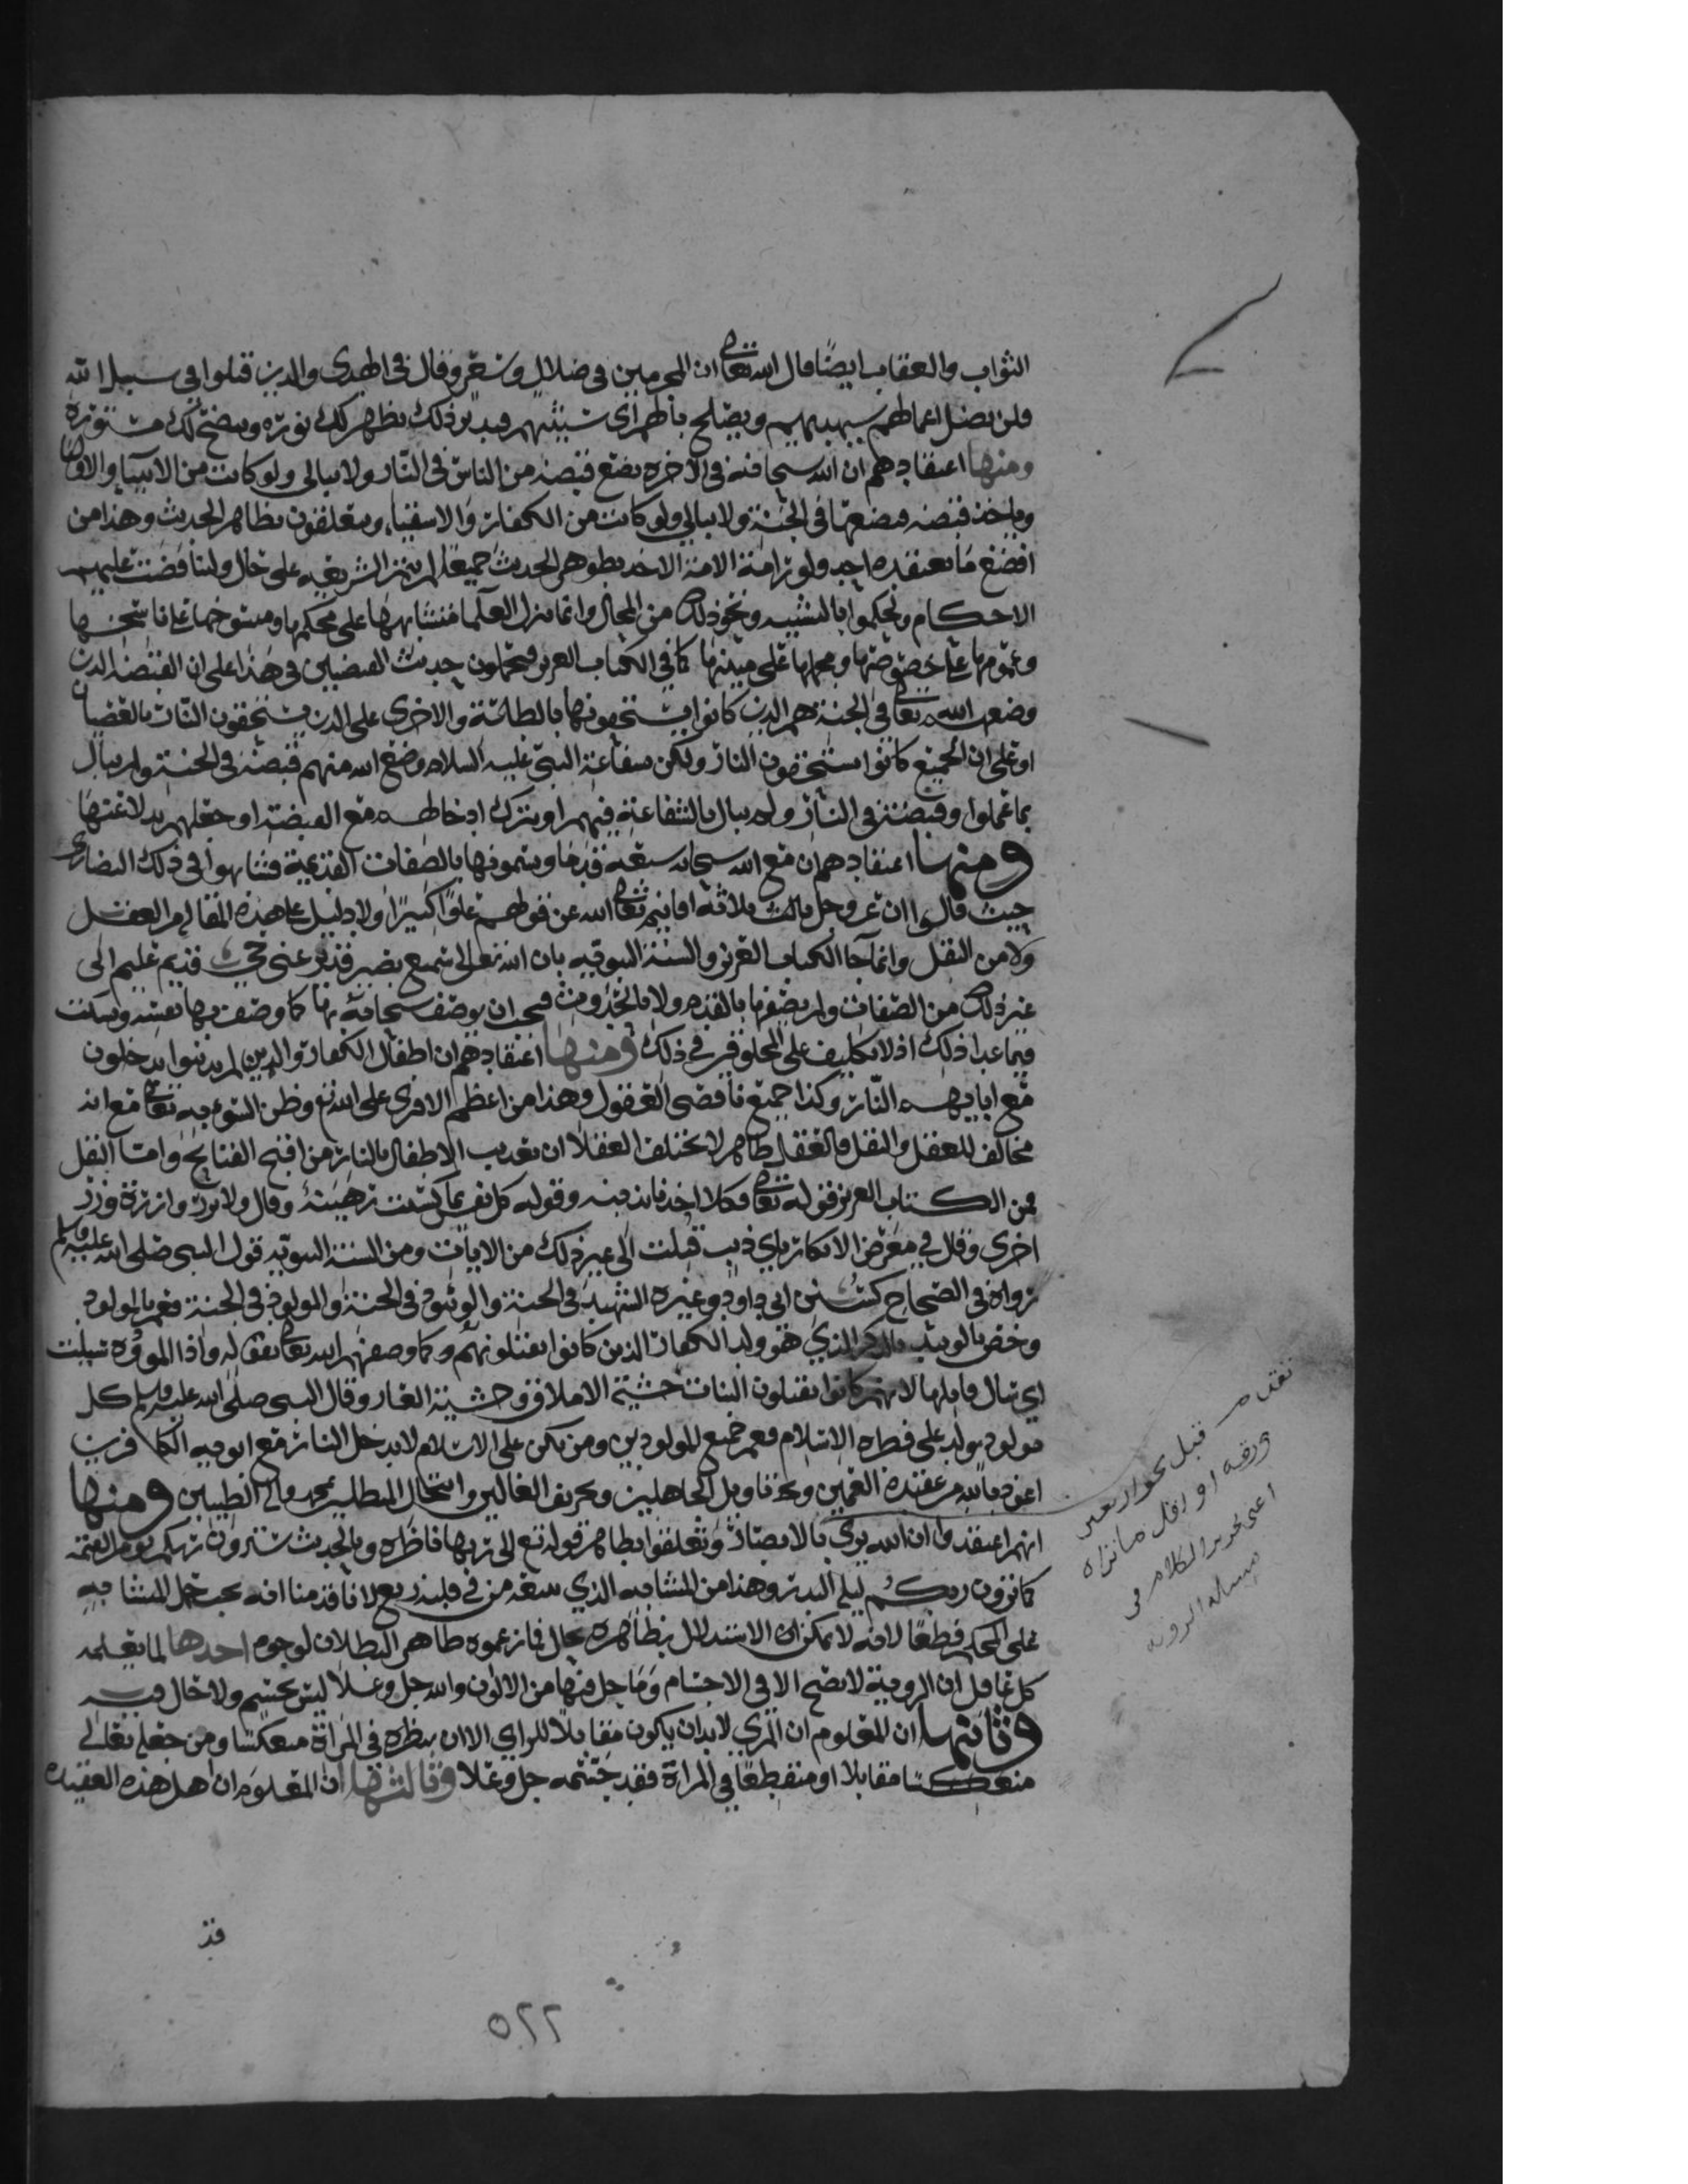 الثواب والعقاب ايضا قال الله تعالى ان المجرمين في ضلال وسعر وقال في الهدى والذين قتلوا في سبيل الله
فلن يضل اعمالهم سيهديهم ويصلح بالهم اى سيثيبهم فتدبر ذلك يظهر لك نوره ويتضح لك مستوره
ومنها اعتقادهم ان الله سبحانه في الاخره يضع قبضه من الناس في النار ولا يبالي ولو كانت من الانبيا والاوليا
وياخذ قبضه فيضعها في الجنة ولا يبالي ولو كانت من الكفار والاشقيا ويتعلقون بظاهر الحديث وهذا من
افضع ما يعتقده احد ولو رامة الامة الاخذ بظوهر الحديث جميعا لم تتم الشريعه على حال ولتناقضت عليهم
الاحكام ولحكموا بالتشبيه ونحو ذلك من المحال وانما ينزل العلما متشابهها على محكمها ومنسوخها على ناسخها
وعمومها على خصوصها ومجملها على مبينها كما في الكتاب العزيز فيحملون حديث القبضتين في هذا على ان القبضة الذين
وضعهم الله تعالى في الجنة هم الذين كانوا يستحقونها بالطاعة والاخرى على الذين يستحقون النار بالعصيان
او على ان الجميع كانوا يستحقون النار ولكن بشفاعة النبي عليه السلام وضع الله منهم قبضة في الجنة ولم يبال
بما عملوا وقبضة في النار ولم يبال بالشفاعة فيهم او بترك ادخالهم مع القبضة او جعلهم بدلا عنها
ومنها اعتقادهم ان مع الله سبحانه سبعه قدما ويسمونها بالصفات القديمة فشابهوا في ذلك النصارى
حيث قالوا ان الله عز وجل ثالث ثلاثة اقانيم تعالى الله عن قولهم علوا كبيرا ولا دليل على هذه المقالة من العقل
ولا من النقل وانما جا الكتاب العزيز والسنة النبويه بان الله تعالى سميع بصير قدير غني حي قديم عليم الى
غير ذلك من الصفات ولم يصفها بالقدم ولا بالحدوث فيجب ان يوصف سبحانه بها كما وصف بها نفسه ويسكت
فيما عدا ذلك اذ لا تكليف على المخلوقين في ذلك ومنها اعتقادهم ان اطفال الكفار والذين لم يذنبوا يدخلون
مع ابايهم النار وكذا جميع ناقصي العقول وهذا من اعظم الافرى على الله تع وظن السوء به تعالى مع انه
مخالف للعقل والنقل فالعقل ظاهر لا يختلف العقلا ان تعذيب الاطفال بالنار من اقبح القبايح واما النقل
فمن الكتاب العزيز قوله تعالى فكلا اخذنا بذنبه وقوله كل نفس بما كسبت رهينة وقال ولا تزر وازرة وزر
اخرى وقال في معرض الانكار باي ذنب قتلت الى غير ذلك من الايات ومن السنة النبويه قول النبي صلى الله عليه وسلم
رواه في الصحاح كسنن ابي داود وغيره الشهيد في الجنة والوئيد في الجنة والمولود في الجنة فعم بالمولود
وخص بالوئيد بالذكر الذي هو ولد الكفار الذين كانوا يقتلونهم وكما وصفهم الله تعالى بقوله واذا المؤدة سيلت
اي سال قاتلها لانهم كانوا يقتلون البنات خشية الاملاق وخشية العار وقال النبي صلى الله عليه وسلم كل
مولود يولد على فطره الاسلام فعم جميع المولودين ومن يكن على الاسلام لا يدخل النار مع ابويه الكافرين
اعوذ بالله من عقيدة العمين وتاويل الجاهلين وتحريف الغالين وانتحال المبطلين بمحمد واله الطيبين ومنها
انهم اعتقدوا ان الله يرى بالابصار وتعلقوا بظاهر قوله تع الى ربها ناظره وبالحديث سترون ربكم يوم القيمه
كما ترون ربكم ليلة البدر وهذا من المتشابه الذي يتبعه من في قلبه زيغ لانا قدمنا انه يجب حمل المتشابه
على المحكم قطعا لانه لا يمكن الاستدلال بظاهره بحال فما زعموه ظاهر البطلان لوجوه احدها لما يعلمه
كل عاقل ان الروية لا تصح الا في الاجسام وما حل فيها من الالوان والله جل وعلا ليس بجسم ولا حال فيه
وثانيها ان المعلوم ان المرى لا بد ان يكون مقابلا للراي الا ان ينظره في المراة منعكسا ومن جعله تعالى
منعكسا مقابلا او منقطعا في المراة فقد جسمه جل وعلا وثالثها ان المعلوم ان اهل هذه العقيده
قد
٥٢٢
تقدم قبل نحو اربعين
ورقه او اقل ما نراه
اعني تحرير الكلام في
مسالة الرويه